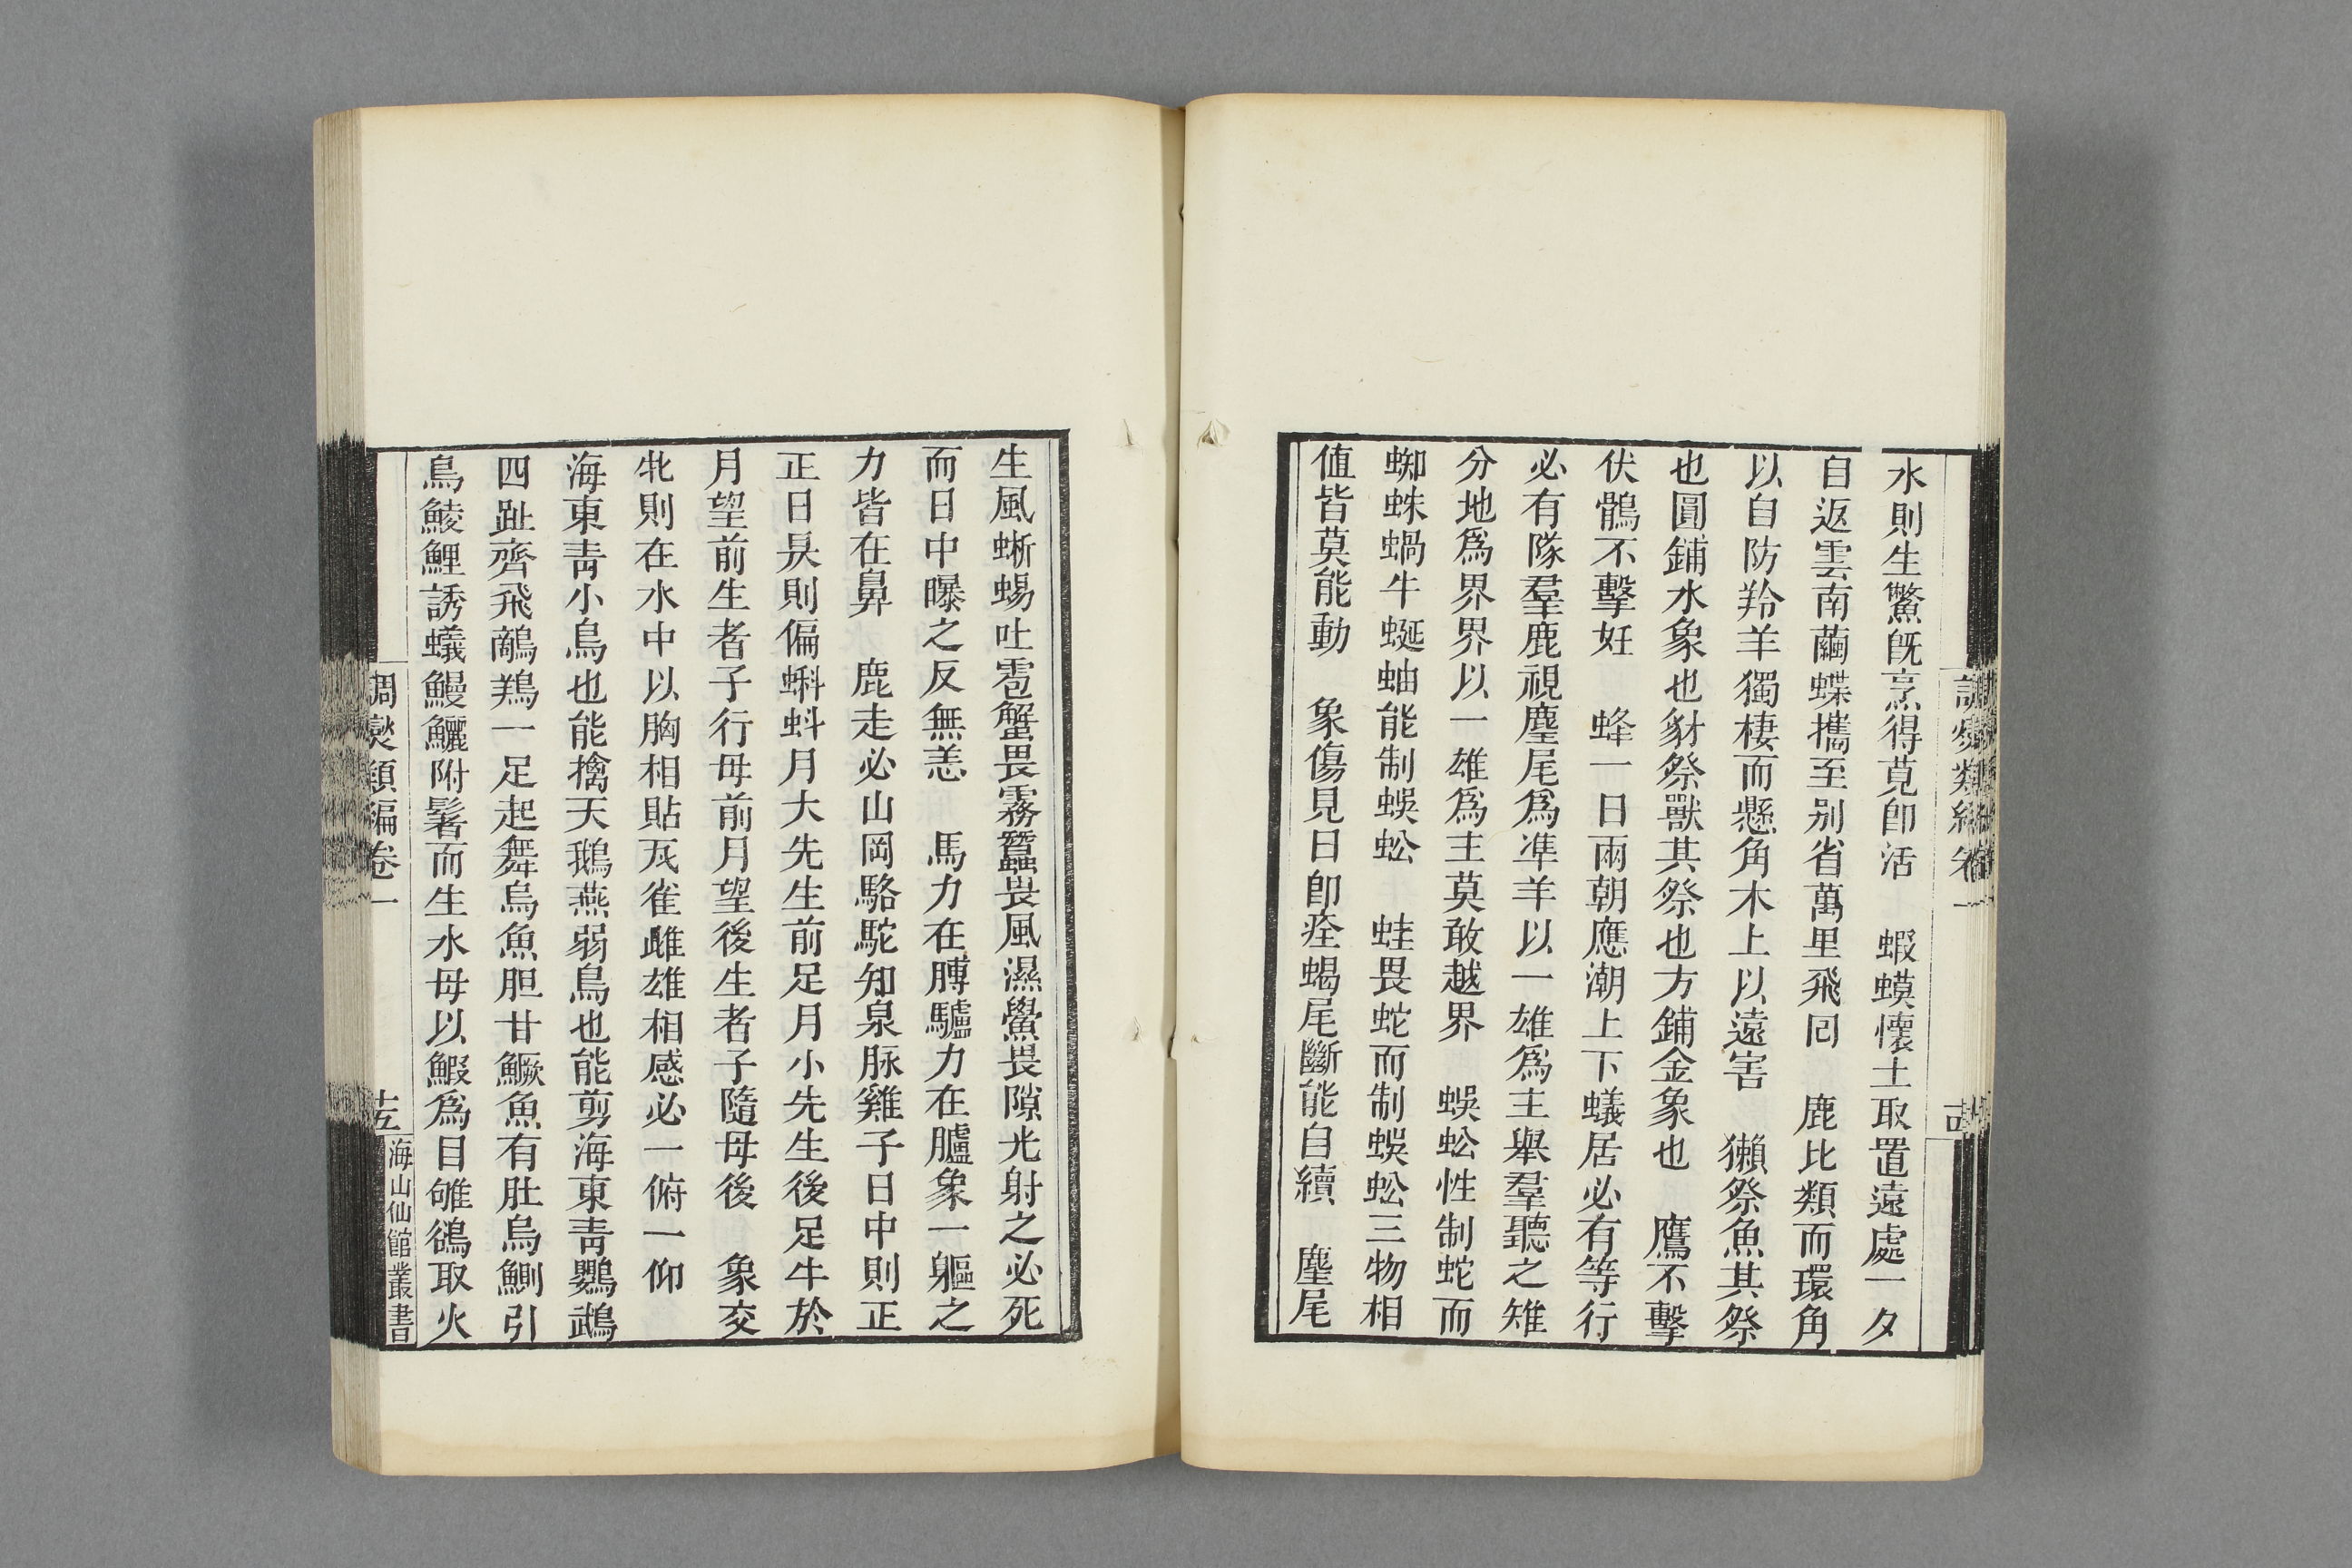 水則生鱉旣烹得莧卽活　蝦蟆懷土取置遠處一夕
自返雲南繭蝶攜至别省萬里飛囘　鹿比類而環角
以自防羚羊獨棲而懸角木上以遠害　獺祭魚其祭
也圓鋪水象也豺祭獸其祭也方鋪金象也　鷹不擊
伏鶻不擊妊　蜂一日兩朝應潮上下蟻居必有等行
必有隊羣鹿視麈尾爲凖羊以一雄爲主舉羣聽之雉
分地爲界界以一雄爲主莫敢越界　蜈蚣性制蛇而
蜘蛛蝸牛蜒蚰能制蜈蚣　蛙畏蛇而制蜈蚣三物相
值皆莫能動　象傷見日卽痊蝎尾斷能自續　麈尾
生風蜥蜴吐雹蟹畏霧蠶畏風濕鱟畏隙光射之必死
而日中曝之反無恙　馬力在膊驢力在臚象一軀之
力皆在鼻　鹿走必山岡駱駝知泉脉雞子日中則正
正日昃則偏蝌蚪月大先生前足月小先生後足牛於
月望前生者子行母前月望後生者子隨母後　象交
牝則在水中以胸相貼瓦雀雌雄相感必一俯一仰
海東青小鳥也能擒天鵝燕弱鳥也能剪海東青鸚鵡
四趾齊飛鷸鷀一足起舞烏魚胆甘鱖魚有肚烏鰂引
烏鯪鯉誘蟻鰻鱺附鬐而生水母以鰕爲目雊鵒取火
調燮類編卷一
海山仙館叢書